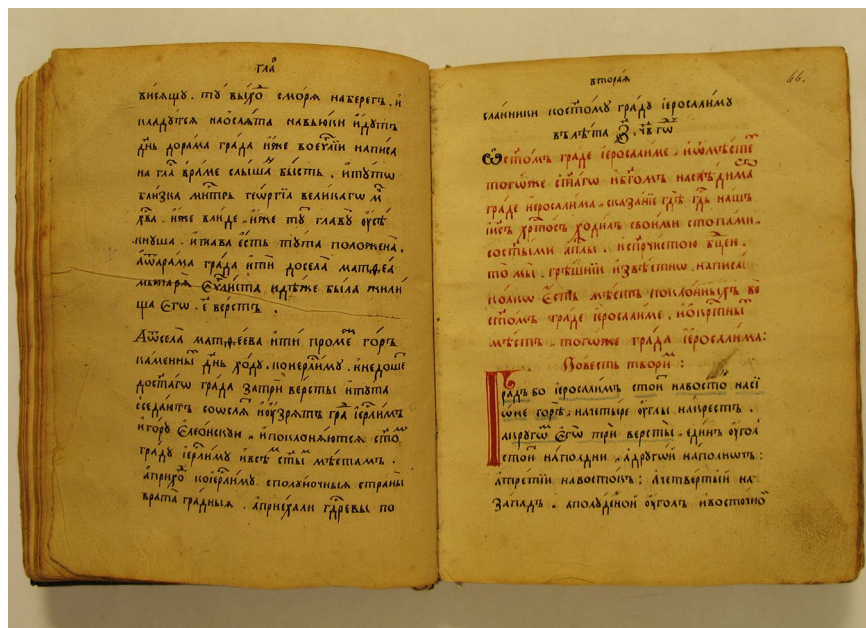 гла҃
висящу . ту вы́хоⷣ смо́ря на берегъ . и҆
кладу́тся на осля́та на вью́ки и҆ и҆ду́тъ
дн҃ь до рама гра́да и҆́же во еѵⷢ҇лїи написа
на гла҃ в ра́ме слы́шаⷩ бы́сть . и҆ ту́тѡ
бли́зка мⷩ҇трь гео́ргїа вели́кагѡ мⷱ҇
хв҃а . и҆́же в ли́де . и҆́же тꙋ̀ главꙋ̀ ᲂу҆сѣ́
кнуша . и҆ глава є҆́сть ту́та положена̀ .
А҆ ѿ ра́ма гра́да и҆тѝ до села̀ матѳеа
мытаря̀ є҆ѵⷢ҇ли́ста и҆дѣ́же была̀ жили́
ща є҆гѡ̀ . є҃ ве́рстъ .
А҆ ѿ села̀ матѳе́ева и҆тѝ промеⷤ го́ръ
ка́менныⷯ дн҃ь хо́ду . ко і҆ерⷭ҇ли́му . и҆ не до́шеⷣ
до ст҃а́гѡ гра́да за трѝ ве́рсты и҆ ту́та
сседа́ютъ со ѻ҆сля́ и҆ ᲂу҆́зрятъ граⷣ і҆ерⷭ҇ли́мъ
и҆ го́ру є҆лео́нскуи . и҆ поклоня́ются ст҃оⷨ
гра́ду і҆ерⷭ҇ли́му и҆ всѣⷨ ст҃ыⷨ мѣста́мъ .
а҆ прихоⷣ ко і҆ерⷭ҇ли́му с полу́ночныя страны̀
врата̀ гра́дныя . а҆ прие́хали в гдⷭ҇ревы по
вторая
66.
сла́нники ко ст҃о́му гра́ду і҆еросали́му
в лѣ́та ҂з҃ . чв҃ гѡⷣ
Ѽ ст҃о́мъ гра́де і҆еросали́ме . и҆ ѡ҆ мѣ́стеⷯ
того́же ст҃а́гѡ и҆ бг҃о́мъ наслѣ́димаⷢ
гра́де і҆еросали́ма . сказа́нїе гдѣ̀ гдⷭ҇ь на́шъ
і҆и҃съ хрⷭ҇то́съ ходи́лъ свои́ми стопа́ми .
со ст҃ы́ми а҆пⷭ҇лы . и҆ с прⷱ҇и́стою бц҃ею .
то мы̀ . грѣ́шнїи и҆звѣ́стнѡ . написаⷯ
ко́лко є҆́сть мѣ́стъ покло́нныхъ во
ст҃о́мъ гра́де і҆еросали́ме . и҆ ѻ҆кртⷭ҇ныⷯ
мѣ́стъ . того́же гра́да і҆еросали́ма :
Повесть твориⷨ :
Гра́дъ бо і҆еросали́мъ стои́т на восто́ⷰ на сї
ѡ҆́не горѣ̀ . на четы́ре ᲂу҆глы̀ на кре́стъ .
а҆ кру́гѡⷨ є҆гѡ̀ трѝ ве́рсты . еди́нъ ᲂу҆́гоⷧ
стои́т на по́лдни . а҆ другі́й на по́лнощъ :
а҆ тре́тїй на восто́къ : а҆ четве́ртый на
за́падъ . а҆ полу́деной ᲂу҆́голъ и҆ восто́чноⷤ